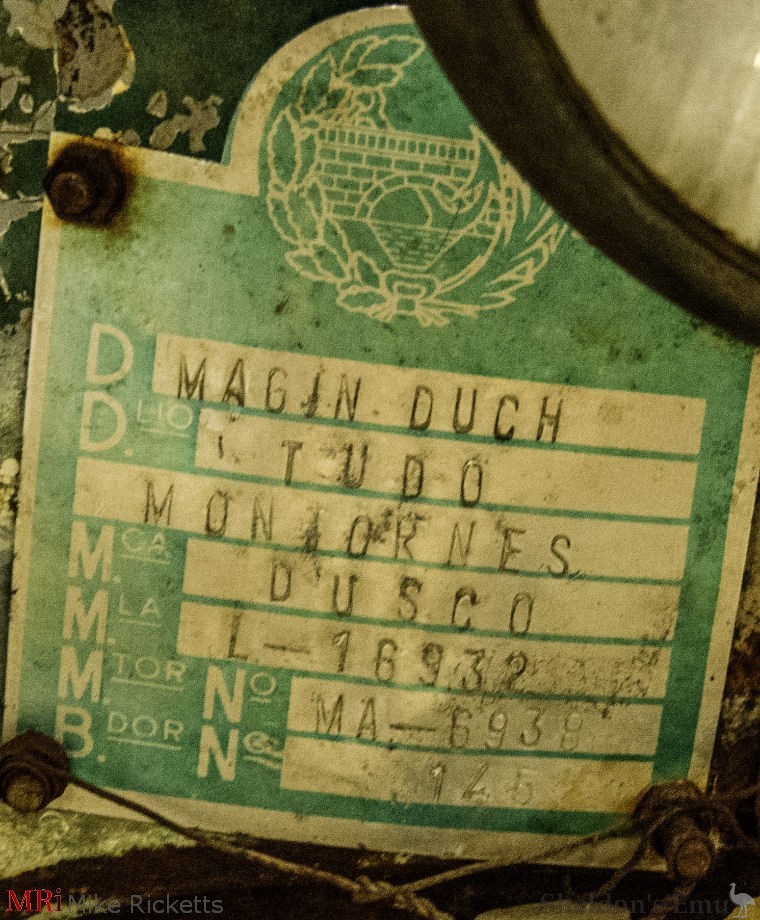 D. MAGIN DUCH
D.LIO TUDO
MONTORNES
M.CA DUSCO
M.LA L-16932
M.TOR Nº MA-6938
B.DOR Nº 145
MRi Mike Ricketts Sheldon's Emu